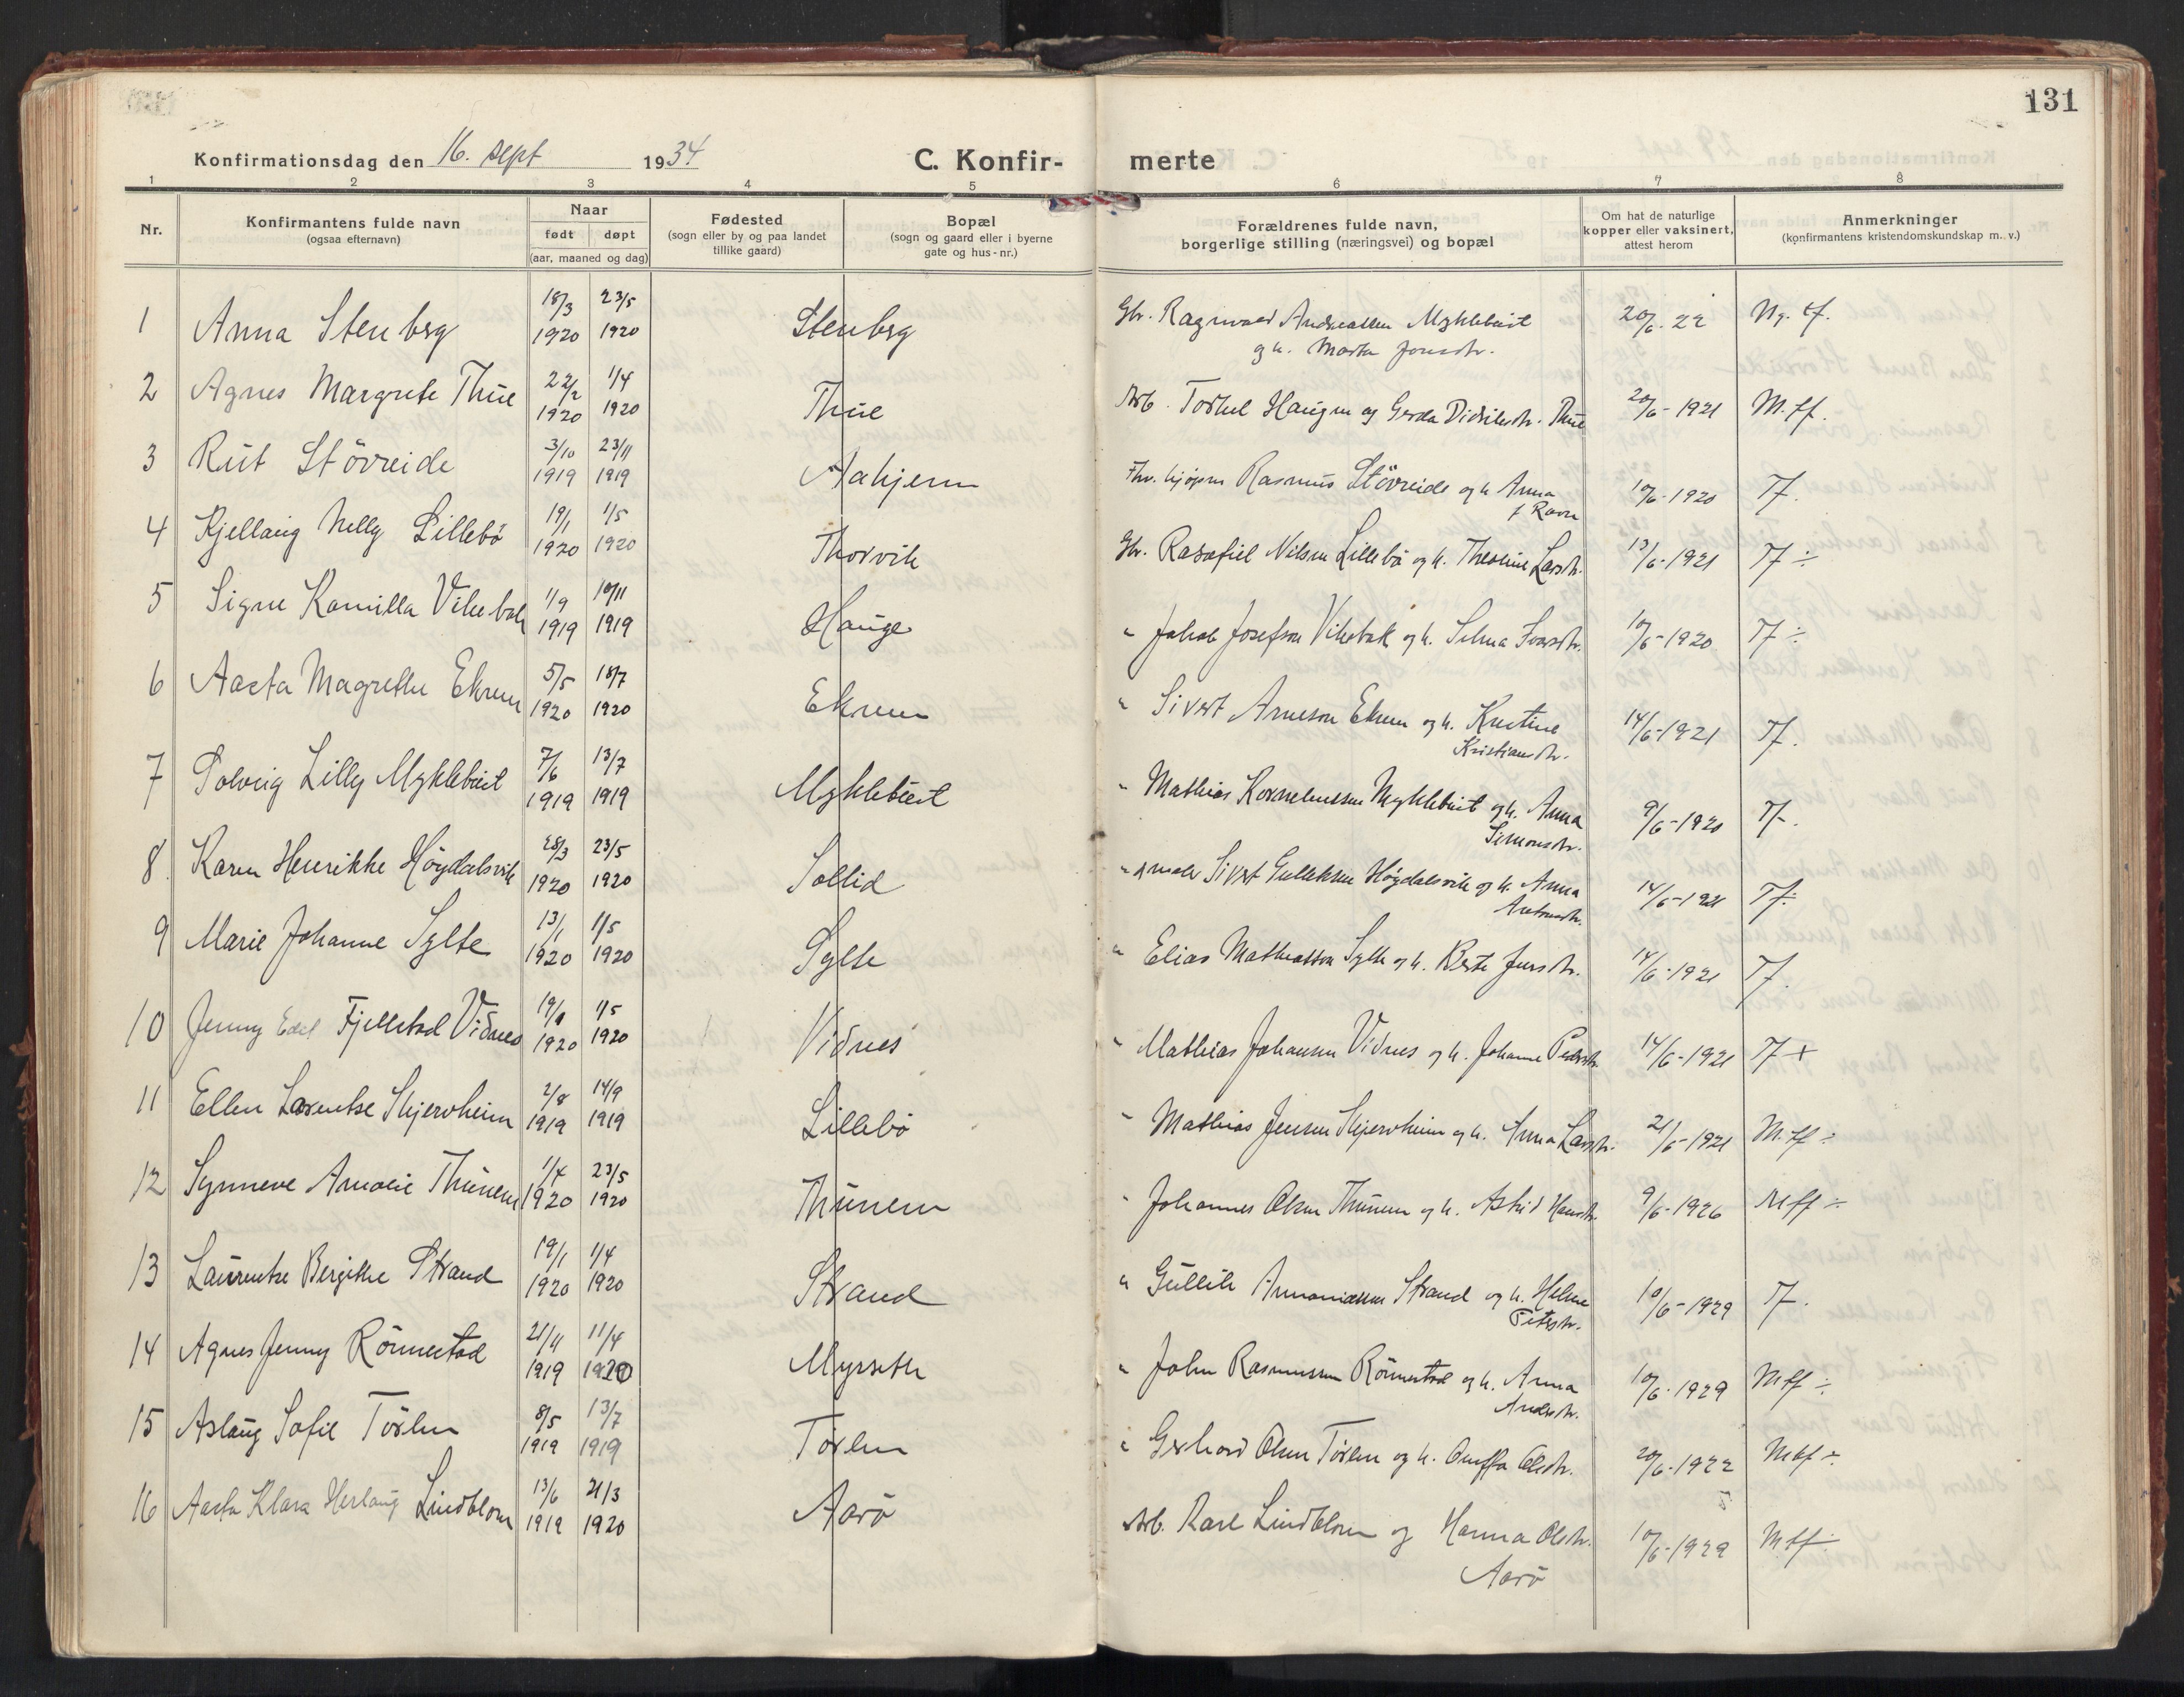 131
Konfirmationsdag den 16. sept 1934 C. Konfirmerte
1 2 3 4 5 6 7 8
Nr. Konfirmantens fulde navn (ogsaa efternavn) Naar født døpt (aar, maaned og dag) Fødested (sogn eller by og paa landet tillike gaard) Bopæl (sogn og gaard eller i byerne gate og hus-nr.) Forældrenes fulde navn, borgerlige stilling (næringsvei) og bopæl Om hat de naturlige kopper eller vaksinert, attest herom Anmerkninger (konfirmantens kristendomskundskap m. v.)
1 Anna Stenberg 18/3 1920 23/5 1920 Stenberg Gbr. Ragnvald Andreassen Myklebust og h. Marta Jonsdtr. 20/6-22
2 Agnes Margrete Thue 22/2 1920 1/4 1920 Thue Arb. Torkel Haugen og Gerda Didriksdtr. Thue 20/6-1921 M.tf.
3 Rut Stövreide 3/10 1919 23/11 1919 Aakjem Rasmus Stövreide og h. Anna f Ravn 10/6-1920 Tf.
4 Kjellaug Nelly Lillebö 19/1 1920 1/5 1920 Thorvik Gbr. Rasafiel Nilsen Lillebö og h. Theoline Larsdtr. 13/6-1921 Tf ÷
5 Signe Kamilla Vikebak 1/9 1919 10/11 1919 Hauge " Jakob Josefson Vikebak og h. Selma Ivarsdtr. 10/6-1920 Tf ÷
6 Aasta Magrethe Ekrem 5/5 1920 18/7 1920 Ekrem " Sivert Arneson Ekrem og h. Kristine Kristiansdtr. 14/6-1921 Tf.
7 Solveig Lilly Myklebust 7/6 1919 13/7 1919 Myklebust " Mathias Korneliussen Myklebust og h. Anna Simonsdtr. 9/6-1920 Tf.
8 Karen Henrikke Høgdalsvik 28/3 1920 23/5 1920 Sollid Sivert Gulleksen Høgdalsvik og h. Anna Antonsdtr. 14/6-1921 Tf ÷
9 Marie Johanne Sylte 13/1 1920 1/5 1920 Sylte " Elias Matheasson Sylte og h. Berte Jensdtr. 14/6-1921 Tf.
10 Jenny Edel Fjellstad Vidnes 19/1 1920 1/5 1920 Vidnes " Mathias Johansen Vidnes og h. Johanne Pedersdtr. 14/6-1921 Tf +
11 Ellen Larentse Skjervheim 2/8 1919 14/9 1919 Lillebö " Mathias Jensen Skjervheim og h. Anna Larsdtr. 21/6-1921 M.tf ÷
12 Synneve Amalie Thunem 1/4 1920 23/5 1920 Thunem " Johannes Olsen Thunem og h. Astrid Hansdtr. 9/6-1926 Mtf ÷
13 Laurentse Bergithe Strand 19/1 1920 1/4 1920 Strand " Gullik Ananiassen Strand og h. Helene Petersdtr. 10/6-1929 Tf.
14 Agnes Jenny Rönnestad 21/11 1919 11/4 1920 Myrseth " John Rasmussen Rönnestad og h. Anna Andersdtr. 10/6-1929 Mtf ÷
15 Aslaug Sofie Törlen 8/5 1919 13/7 1919 Törlen " Gerhard Olsen Törlen og h. Olsdtr. 20/6-1922 Mtf ÷
16 Aasta Klara Herlaug Lindblom 13/6 1919 21/3 1920 Aarö Arb. Karl Lindblom og Hanna Olsdtr. Aarö 10/6-1929 Mtf ÷